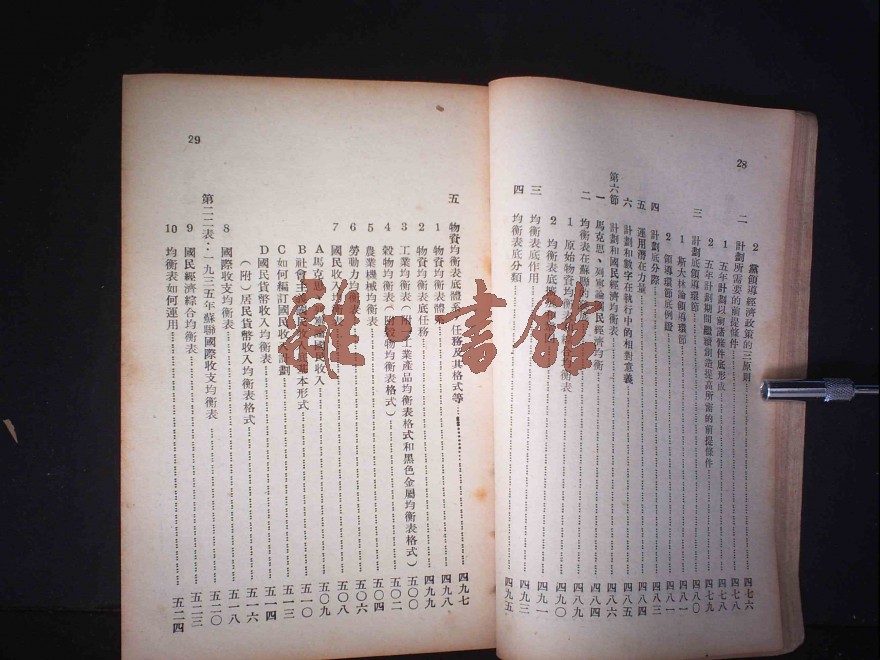 28
2 黨領導經濟政策的三原則……四七六
二 計劃所需要的前提條件……四七八
1 五年計劃以前諸條件底形成……四七八
2 五年計劃期間繼續創造提高所需的前提條件……四七九
三 計劃底領導環節……四八〇
1 斯大林論領導環節……四八一
2 領導環節底例證……四八二
四 計劃底分際……四八三
五 運用潛在力量……四八四
六 計劃和數字在執行中的相對意義……四八五
第六節 計劃和國民經濟均衡表……四八八
一 馬克思、列寧論國民經濟均衡……四八四
二 均衡表在蘇聯
1 原始物資均衡表……四八九
2 均衡表底……四九〇
三 均衡表底作用……四九一
四 均衡表底分類……四九五
29
五 物資均衡表底體系、任務及其格式等……四九七
1 物資均衡表體系……四九八
2 物資均衡表底任務……四九九
3 工業均衡表(附一工業產品均衡表格式和黑色金屬均衡表格式)……五〇〇
4 穀物均衡表(附穀物均衡表格式)……五〇二
5 農業機械均衡表……五〇四
6 勞動力均衡表……五〇六
7 國民收入均衡表……五〇八
A 馬克思 國民收入……五〇九
B 社會主義國民收入基本形式……五一〇
C 如何編訂國民收入計劃……五一三
D 國民貨幣收入均衡表……五一四
(附)居民貨幣收入均衡表格式……五一六
8 國際收支均衡表……五一八
第二二表:一九三五年蘇聯國際收支均衡表……五二〇
9 國民經濟綜合均衡表……五二三
10 均衡表如何運用……五二四
雜·書館